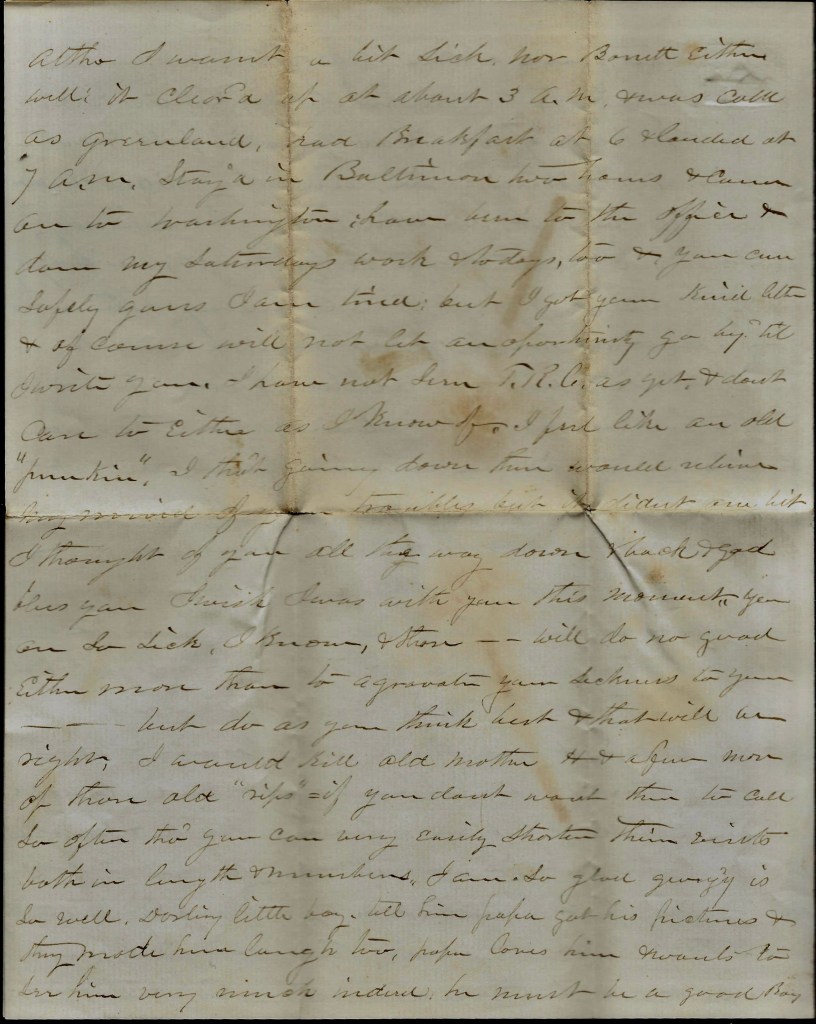 altho I wasnt a bit sick, nor Barrett either
well: it Clear'd up at about 3 A.M, & was Cold
as greenland, had Breakfast at 6 & landed at
7 A.M. Stay'd in Baltimore two hours & Came
on to Washington, have been to the office &
done my Saturdays work & todays, too & you can
safely guess I am tired: but I got your Kind letter
& of course will not let an oportunity go by til
I write you. I have not seen T.R.C. as yet, & dont
Care to Either as I Know of. I feel like an old
"punkin". I tho't going down there would relieve
my mind of your troubles but it didnt one bit
I thought of you all the way down & back & god
bless you I wish I was with you this moment, you
are so sick, I Know, & those -- will do no good
Either more than to agravate your sickness to your
--- but do as you think best & that will be
right, I would kill old mother H & a few more
of those old "rips" = if you dont want them to call
so often tho' you can very easily shorten their visits
both in length & numbers, I am so glad georgy is
so well. Darling little boy. tell him papa got his pictures &
they made him laugh too, papa loves him & wants to
see him very much indeed, he must be a good Boy